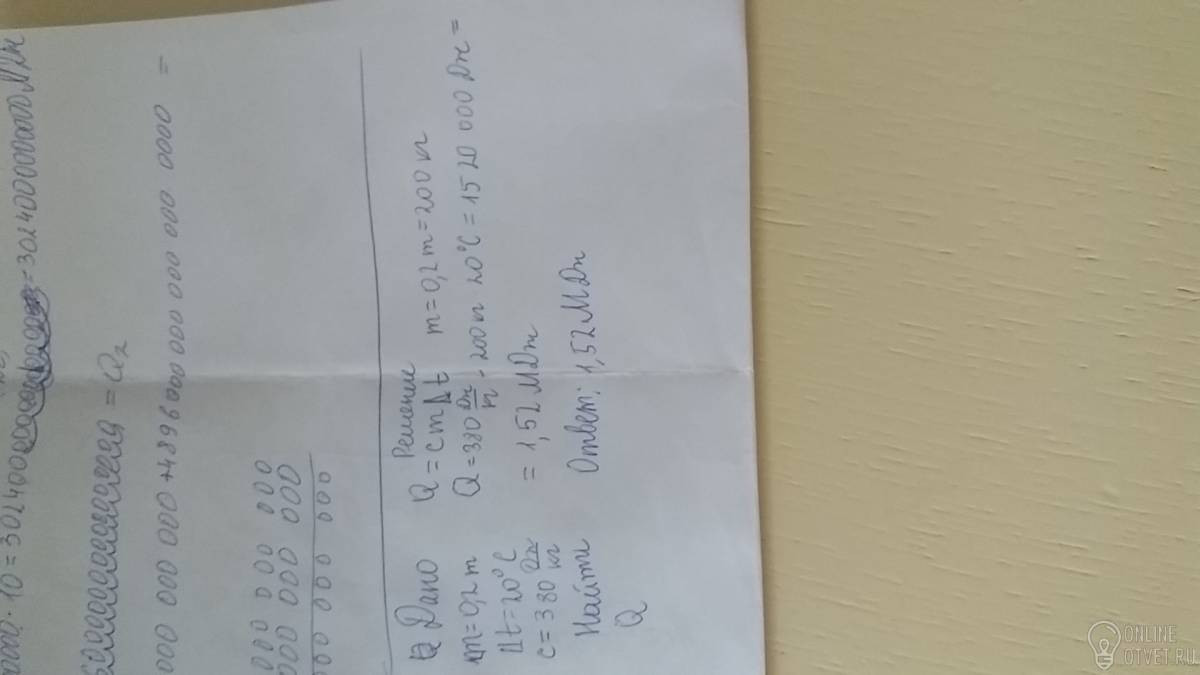 · 10 = 302400
= Q₂
000 000 000 000 + 4896000 000 000 000 0000 =
000 000 000 000
000 000 000 000
000 000 000 000
Дано
m = 0,2 т
Δt = 20°C
c = 380 Дж/кг
Найти
Q
Решение
Q = cmΔt m = 0,2 т = 200 кг
Q = 380 Дж/кг · 200 кг 20°C = 1520 000 Дж =
= 1,52 МДж
Ответ: 1,52 МДж
ONLINE
OTVET.RU